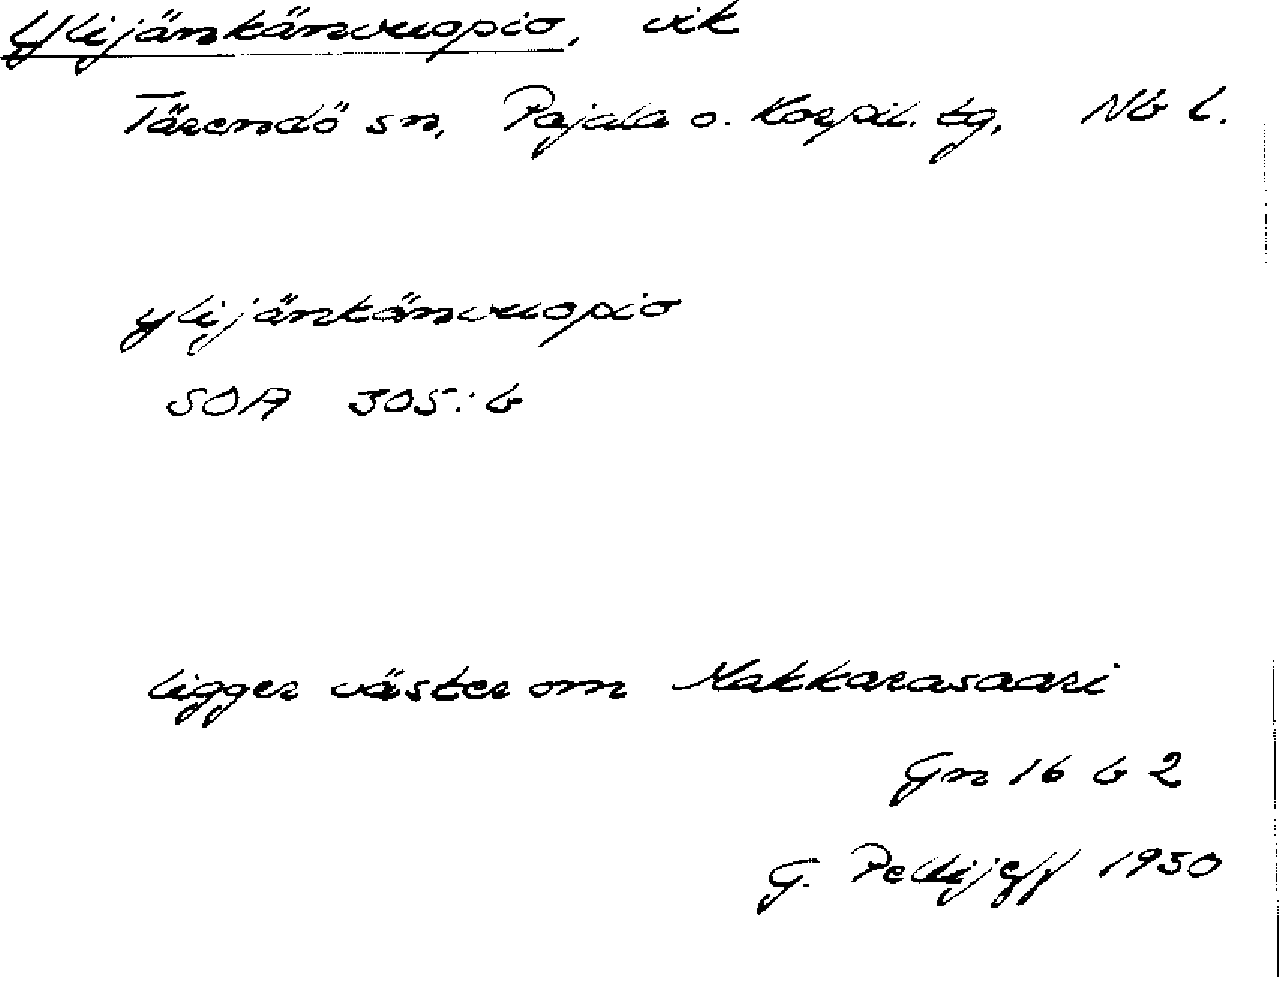 Ylijänkänvuopio, vik
Tärendö sn, Pajala o. Korpil. tg, Nb l.
ylijänkänvuopio
SOA 305:6
ligger väster om Makkarasaari
Gn 16 b 2
G. Pellijeff 1950